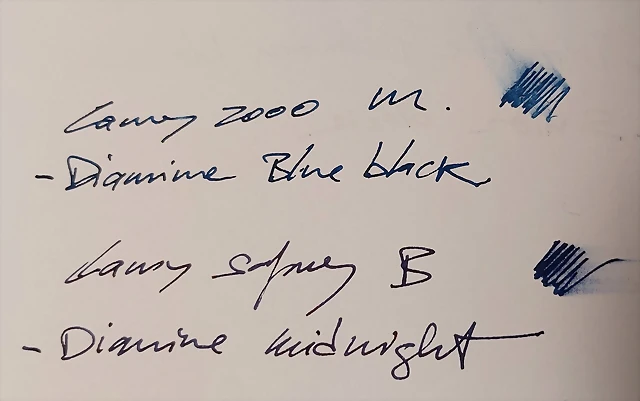 Lamy 2000 M.
- Diamine Blue black
Lamy Safari B
- Diamine midnight